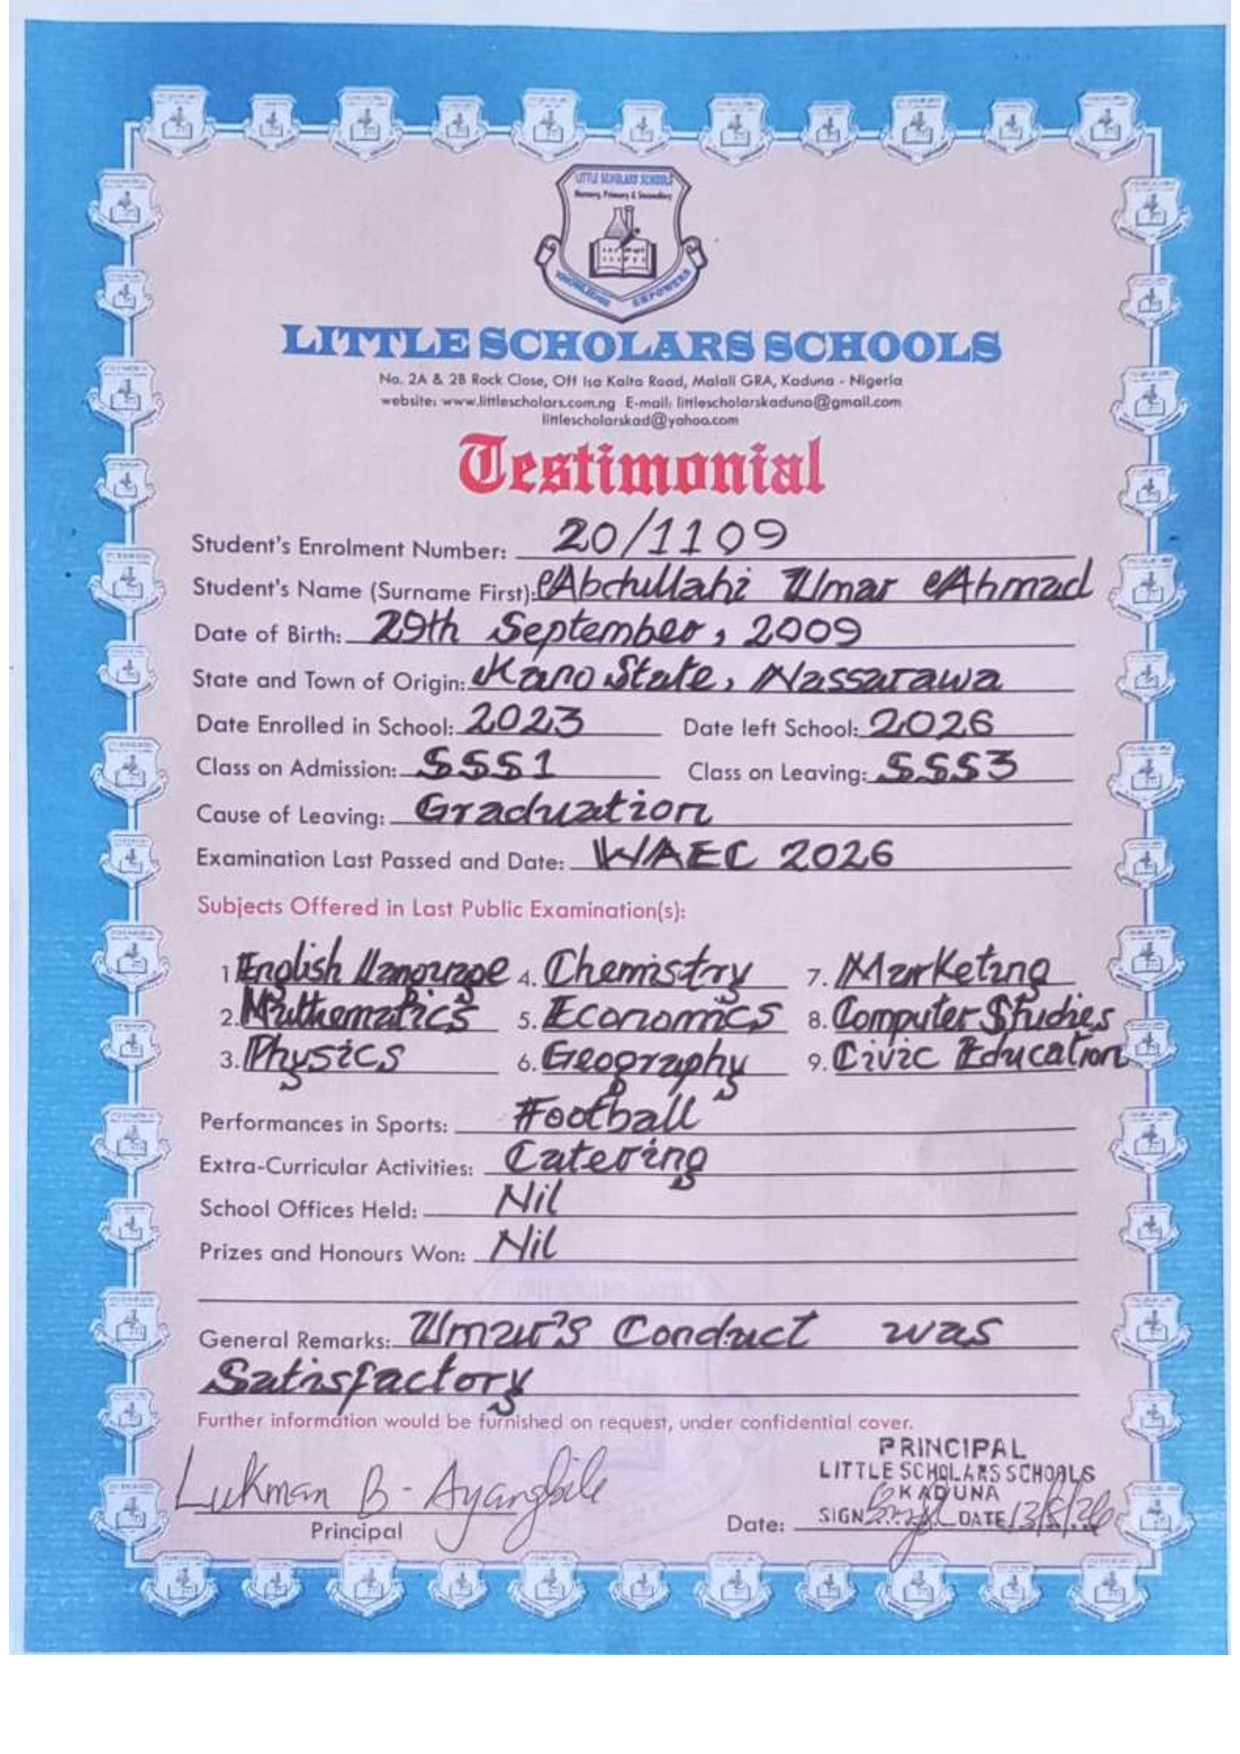 LITTLE SCHOLARS SCHOOLS
Nursery, Primary & Secondary
KNOWLEDGE EMPOWERS
LITTLE SCHOLARS SCHOOLS
No. 2A & 2B Rock Close, Off Isa Kaita Road, Malali GRA, Kaduna - Nigeria
website: www.littlescholars.com.ng E-mail: littlescholarskaduna@gmail.com
littlescholarskad@yahoo.com
Testimonial
Student's Enrolment Number: 20/1109
Student's Name (Surname First): Abdullahi Umar Ahmad
Date of Birth: 29th September, 2009
State and Town of Origin: Kano State, Nassarawa
Date Enrolled in School: 2023 Date left School: 2026
Class on Admission: SSS1 Class on Leaving: SSS3
Cause of Leaving: Graduation
Examination Last Passed and Date: WAEC 2026
Subjects Offered in Last Public Examination(s):
1 English Language 4. Chemistry 7. Marketing
2. Mathematics 5. Economics 8. Computer Studies
3. Physics 6. Geography 9. Civic Education
Performances in Sports: Football
Extra-Curricular Activities: Catering
School Offices Held: Nil
Prizes and Honours Won: Nil
General Remarks: Umar's Conduct was
Satisfactory
Further information would be furnished on request, under confidential cover.
PRINCIPAL
LITTLE SCHOLARS SCHOOLS
KADUNA
Lukman B. Ayangbile
Principal
Date: SIGN DATE 13/5/26